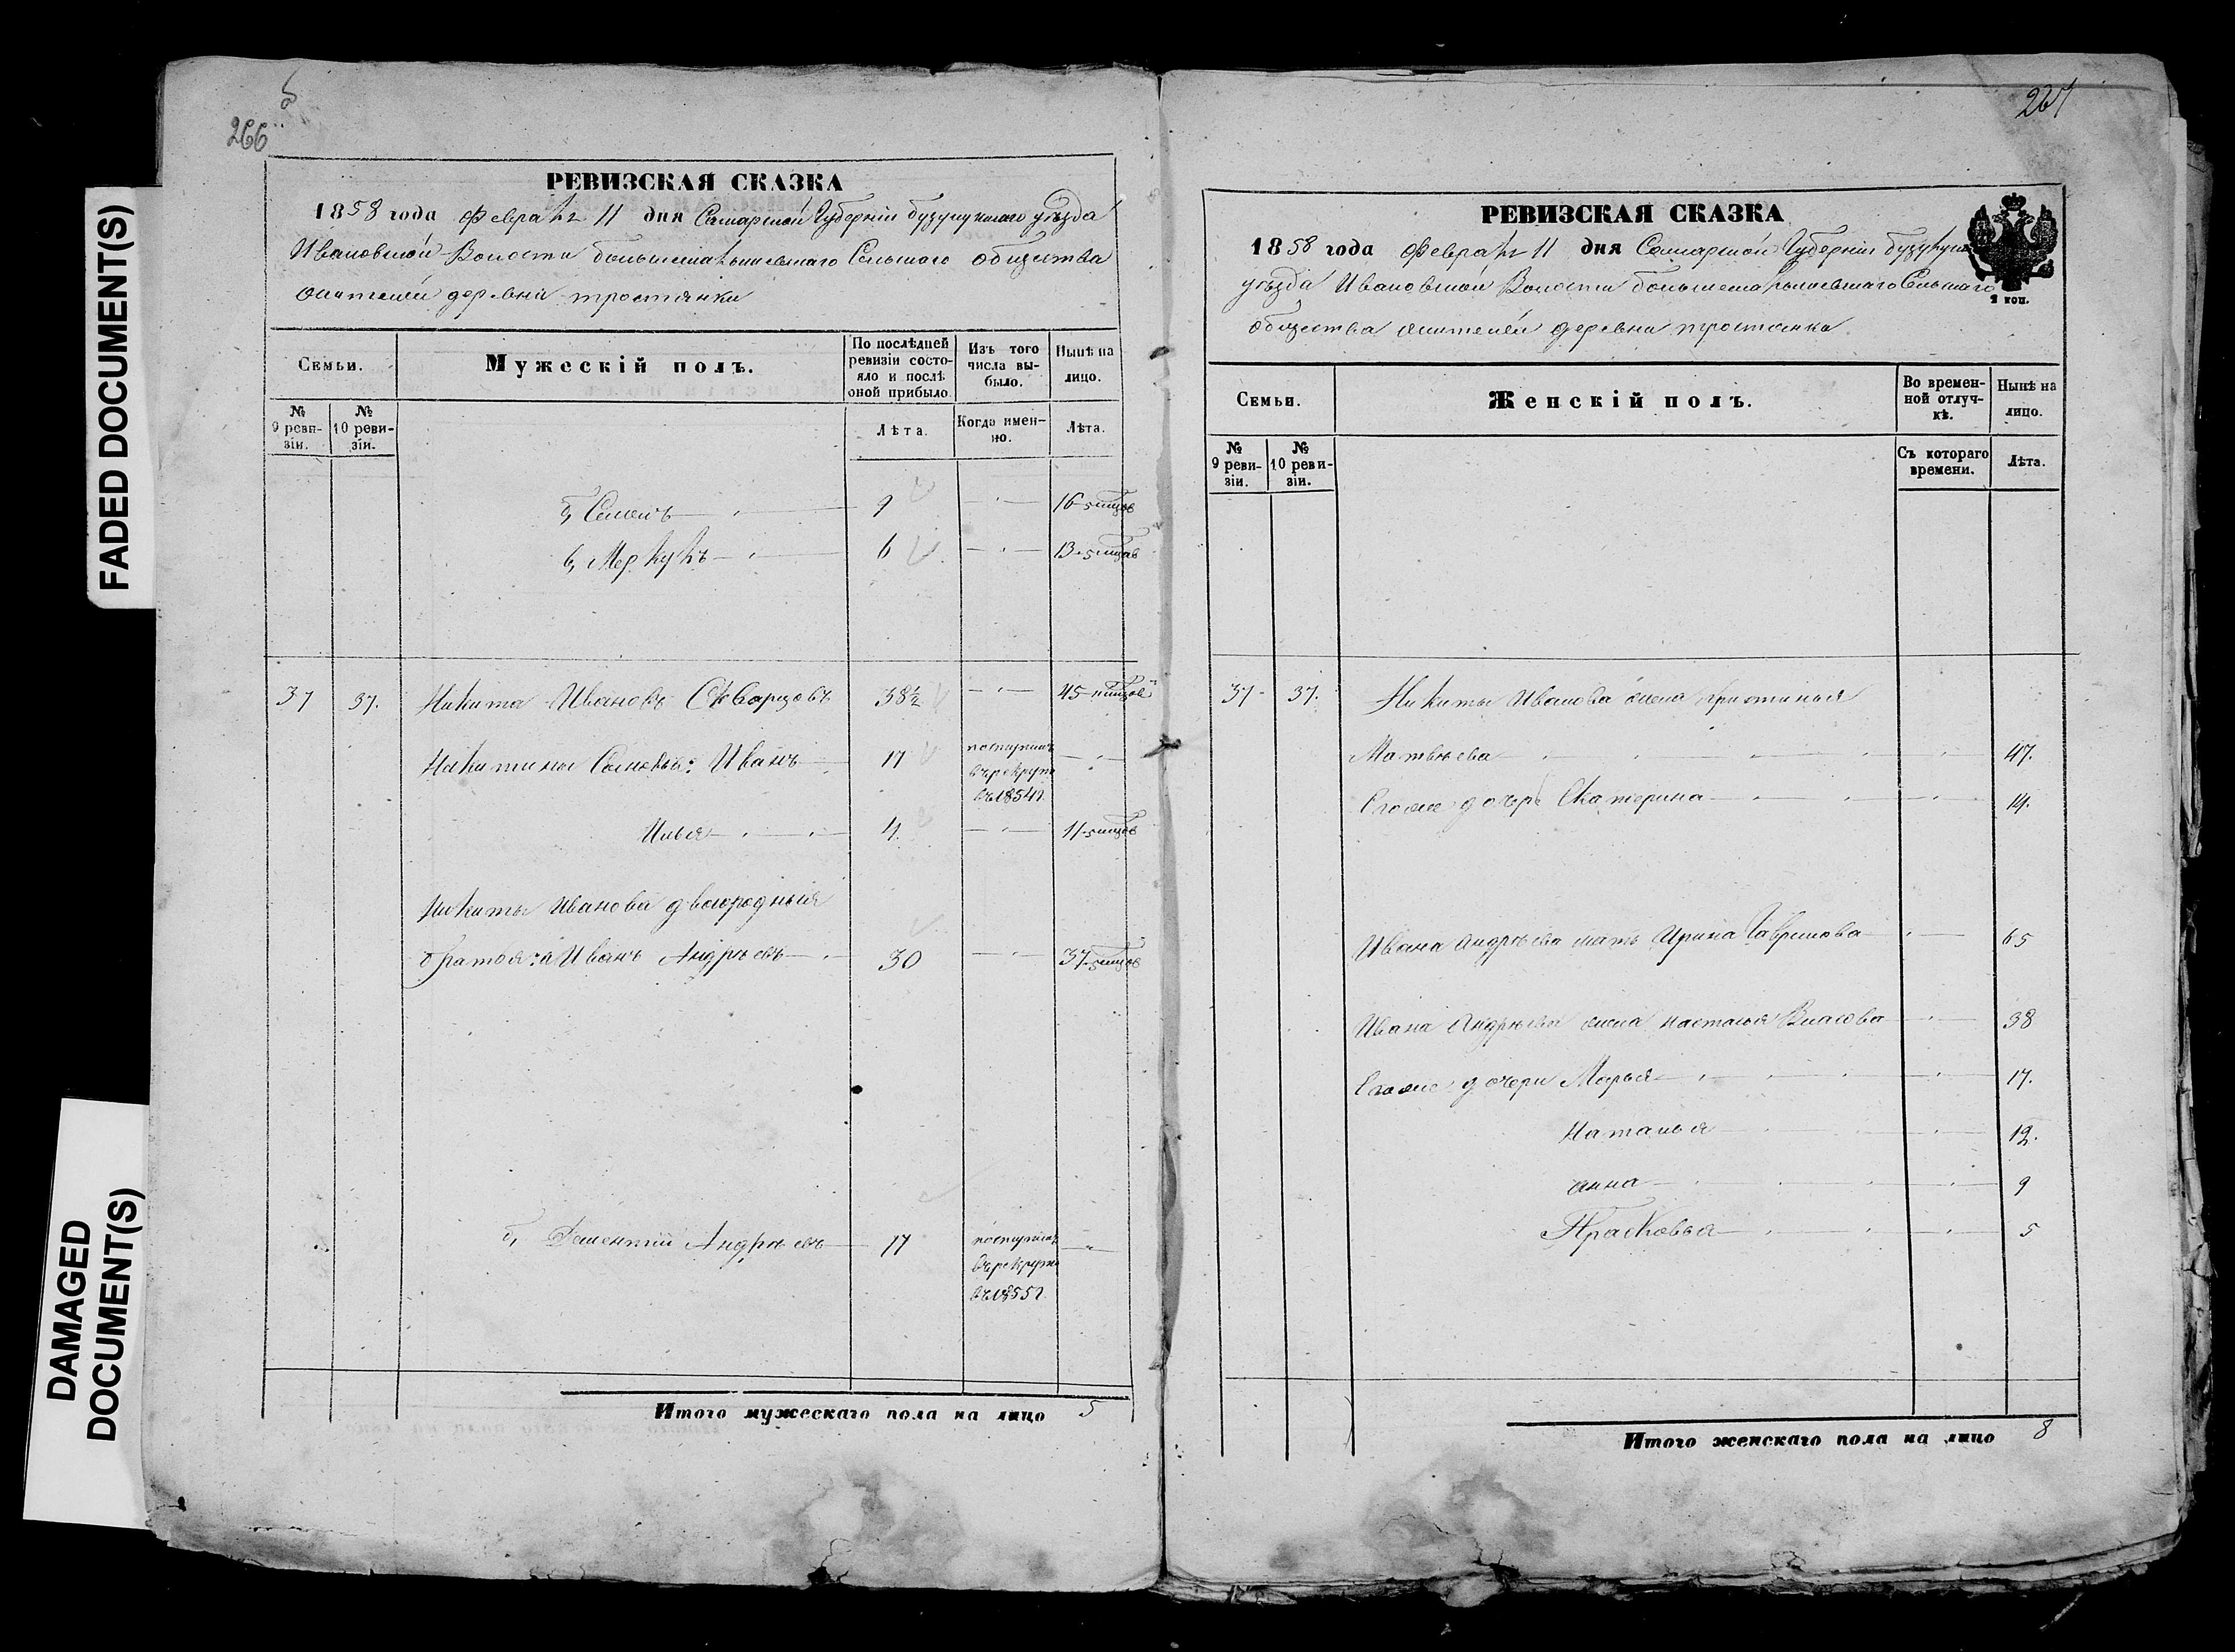 266
РЕВИЗСКАЯ СКАЗКА
1858 года Февраля 11 дня Самарской Губерніи бузулукскаго уѣзда
Ивановской Волости Сельскаго общества
жителей деревни тростянки
Семьи.
Мужескій полъ.
По послѣдней ревизіи состояло и послѣ оной прибыло.
Изъ того числа выбыло.
Нынѣ на лицо.
№ 9 ревизіи.
№ 10 ревизіи.
Лѣта.
Когда именно.
Лѣта.
б, Семенъ 9 16
в, Меркулъ 6 13
37 37. Никита Ивановъ Скварцовъ 38½ 45
Никитины Сыновья: Иванъ 17 поступилъ
въ рекруты
въ 1854 г.
Илья 4. 11
Никиты Иванова двоюродныя
братья: а Иванъ Андрѣевъ 30 37
б, Андрѣевъ 17 поступилъ
въ рекруты
въ 1855 г.
Итого мужескаго пола на лицо 5
267
РЕВИЗСКАЯ СКАЗКА
1858 года Февраля 11 дня Самарской Губерніи
уѣзда Ивановской Волости Сельскаго
общества жителей деревни тростянки
1 коп.
Семьи.
Женскій полъ.
Во временной отлучкѣ.
Нынѣ на лицо.
№ 9 ревизіи.
№ 10 ревизіи.
Съ котораго времени.
Лѣта.
37 37. Никиты Иванова жена Христинья
Матвѣева 47.
Егоже дочерь Екатерина 14.
Ивана Андрѣева мать Ирина Гаврилова 65
Ивана Андрѣева жена настасья Власова 38
Егоже дочери Марья 17.
Наталья 12.
анна 9
Прасковья 5
Итого женскаго пола на лицо 8
FADED DOCUMENT(S)
DAMAGED
DOCUMENT(S)